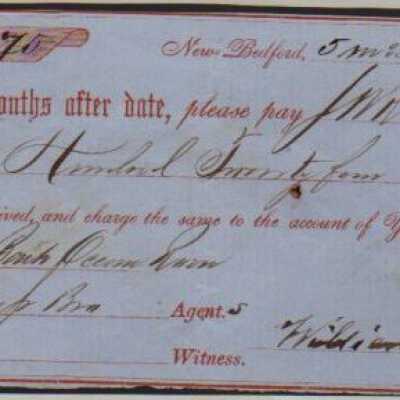 75
New-Bedford, 5 m
onths after date, please pay
Hundred Twenty four
ived, and charge the same to the account of
Bank Ocean
Bro Agent.s
William
Witness.